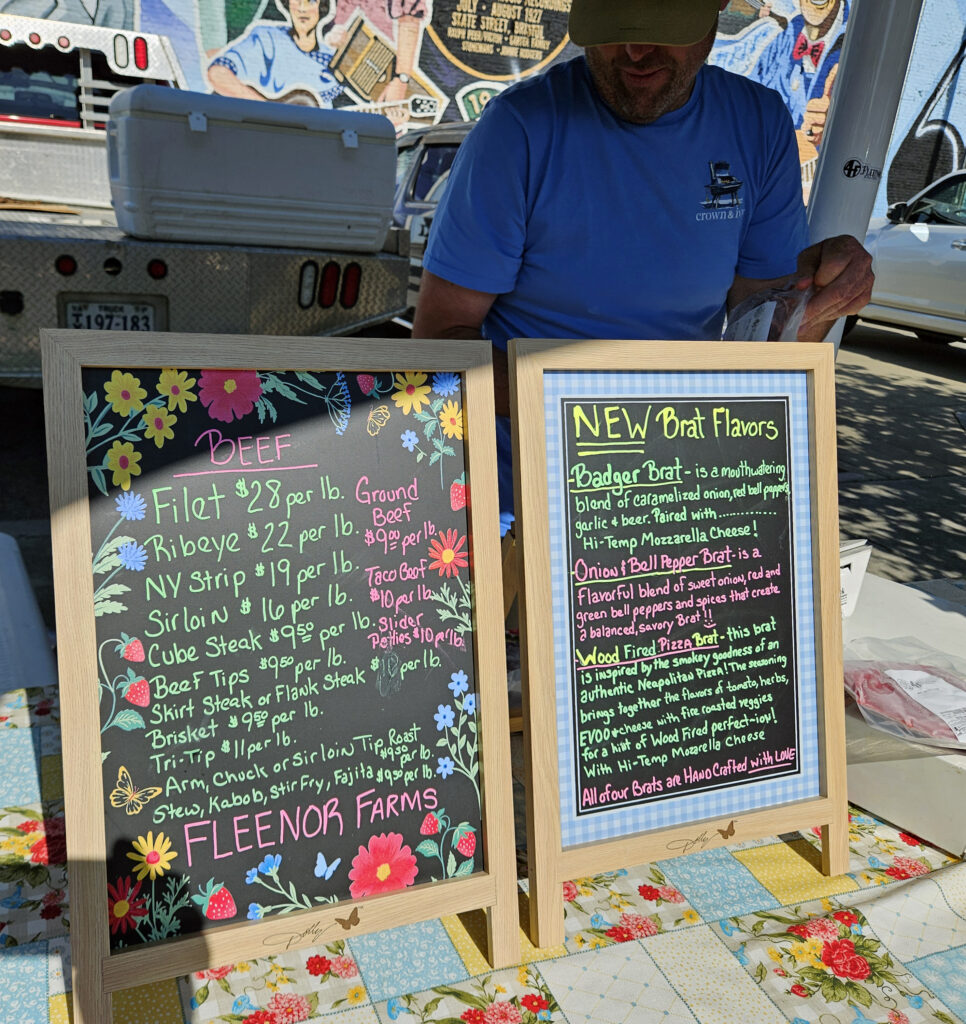 JULY - AUGUST 1927
STATE STREET
crown &
197·183
BEEF
Filet $28 per lb.
Ribeye $22 per lb.
NY Strip $19 per lb.
Sirloin $16 per lb.
Cube Steak $9.50 per lb.
Beef Tips $9.50 per lb.
Skirt Steak or Flank Steak per lb.
Brisket $9.50 per lb.
Tri-Tip $11 per lb.
Arm, Chuck or Sirloin Tip Roast $9.50 per lb.
Stew, Kabob, Stir Fry, Fajita $9.50 per lb.
Ground
Beef
$9.00 per lb.
Taco Beef
$10 per lb.
Slider
Patties $10 per lb.
FLEENOR FARMS
Dolly
NEW Brat Flavors
-Badger Brat - is a mouthwatering
blend of caramelized onion, red bell peppers,
garlic & beer. Paired with..............
Hi-Temp Mozzarella Cheese!
-Onion & Bell Pepper Brat - is a
Flavorful blend of sweet onion, red and
green bell peppers and spices that create
a balanced, savory Brat!!
-Wood Fired Pizza Brat - this brat
is inspired by the smokey goodness of an
authentic Neapolitan Pizza! The seasoning
brings together the flavors of tomato, herbs,
EVOO & cheese with fire roasted veggies
for a hint of Wood Fired perfect-ion!
With Hi-Temp Mozarella Cheese
All of our Brats are HAND Crafted with LOVE
Dolly